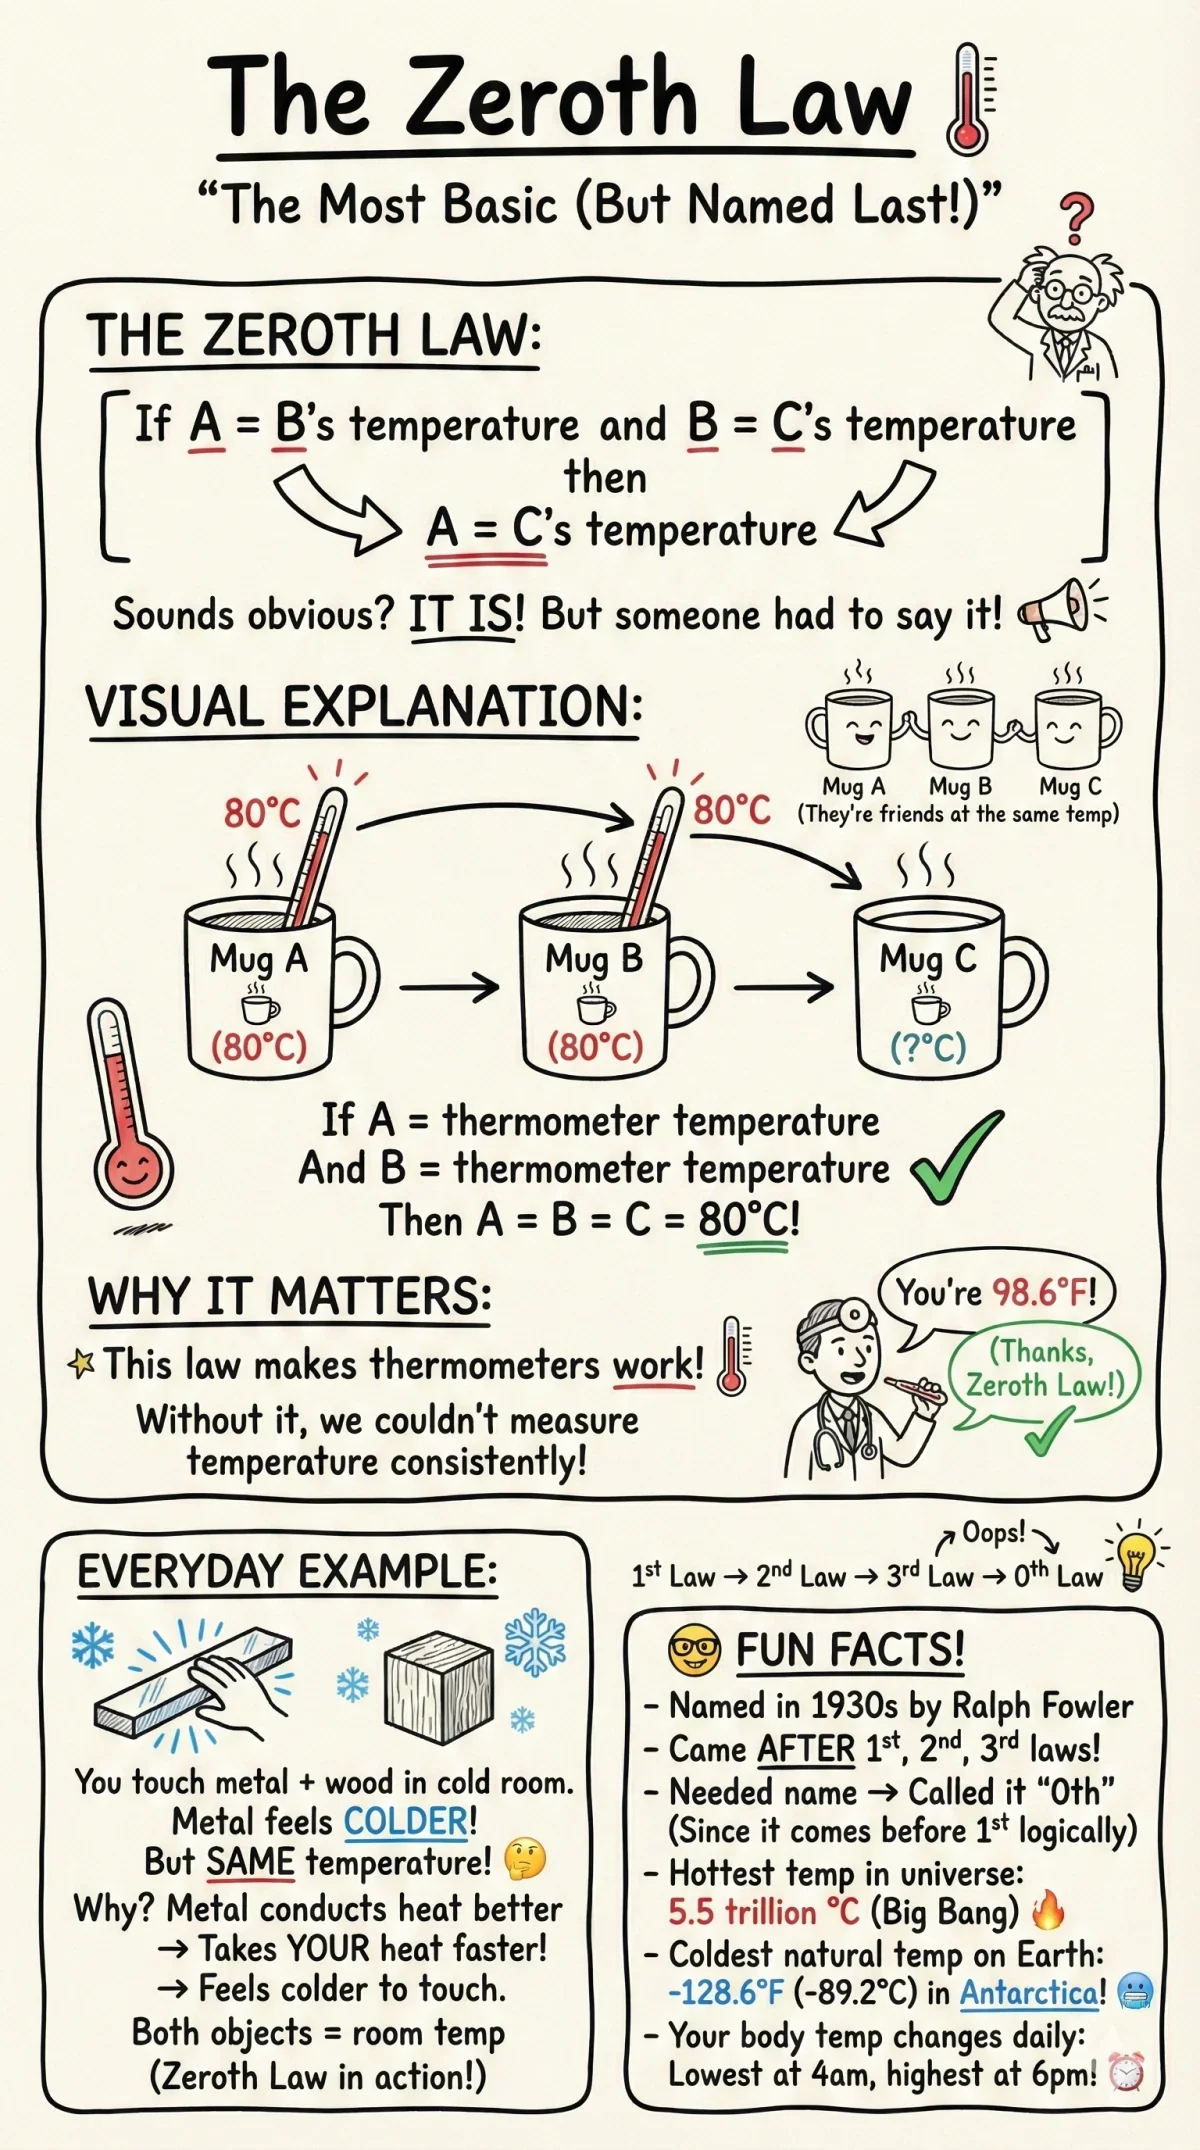 The Zeroth Law
“The Most Basic (But Named Last!)”
?
THE ZEROTH LAW:
If A = B’s temperature and B = C’s temperature
then
A = C’s temperature
Sounds obvious? IT IS! But someone had to say it!
VISUAL EXPLANATION:
Mug A Mug B Mug C
(They're friends at the same temp)
80°C
80°C
Mug A
(80°C)
Mug B
(80°C)
Mug C
(?°C)
If A = thermometer temperature
And B = thermometer temperature
Then A = B = C = 80°C!
WHY IT MATTERS:
This law makes thermometers work!
Without it, we couldn't measure
temperature consistently!
You're 98.6°F!
(Thanks,
Zeroth Law!)
EVERYDAY EXAMPLE:
You touch metal + wood in cold room.
Metal feels COLDER!
But SAME temperature!
Why? Metal conducts heat better
→ Takes YOUR heat faster!
→ Feels colder to touch.
Both objects = room temp
(Zeroth Law in action!)
Oops!
1st Law → 2nd Law → 3rd Law → 0th Law
FUN FACTS!
- Named in 1930s by Ralph Fowler
- Came AFTER 1st, 2nd, 3rd laws!
- Needed name → Called it “0th”
(Since it comes before 1st logically)
- Hottest temp in universe:
5.5 trillion °C (Big Bang)
- Coldest natural temp on Earth:
-128.6°F (-89.2°C) in Antarctica!
- Your body temp changes daily:
Lowest at 4am, highest at 6pm!